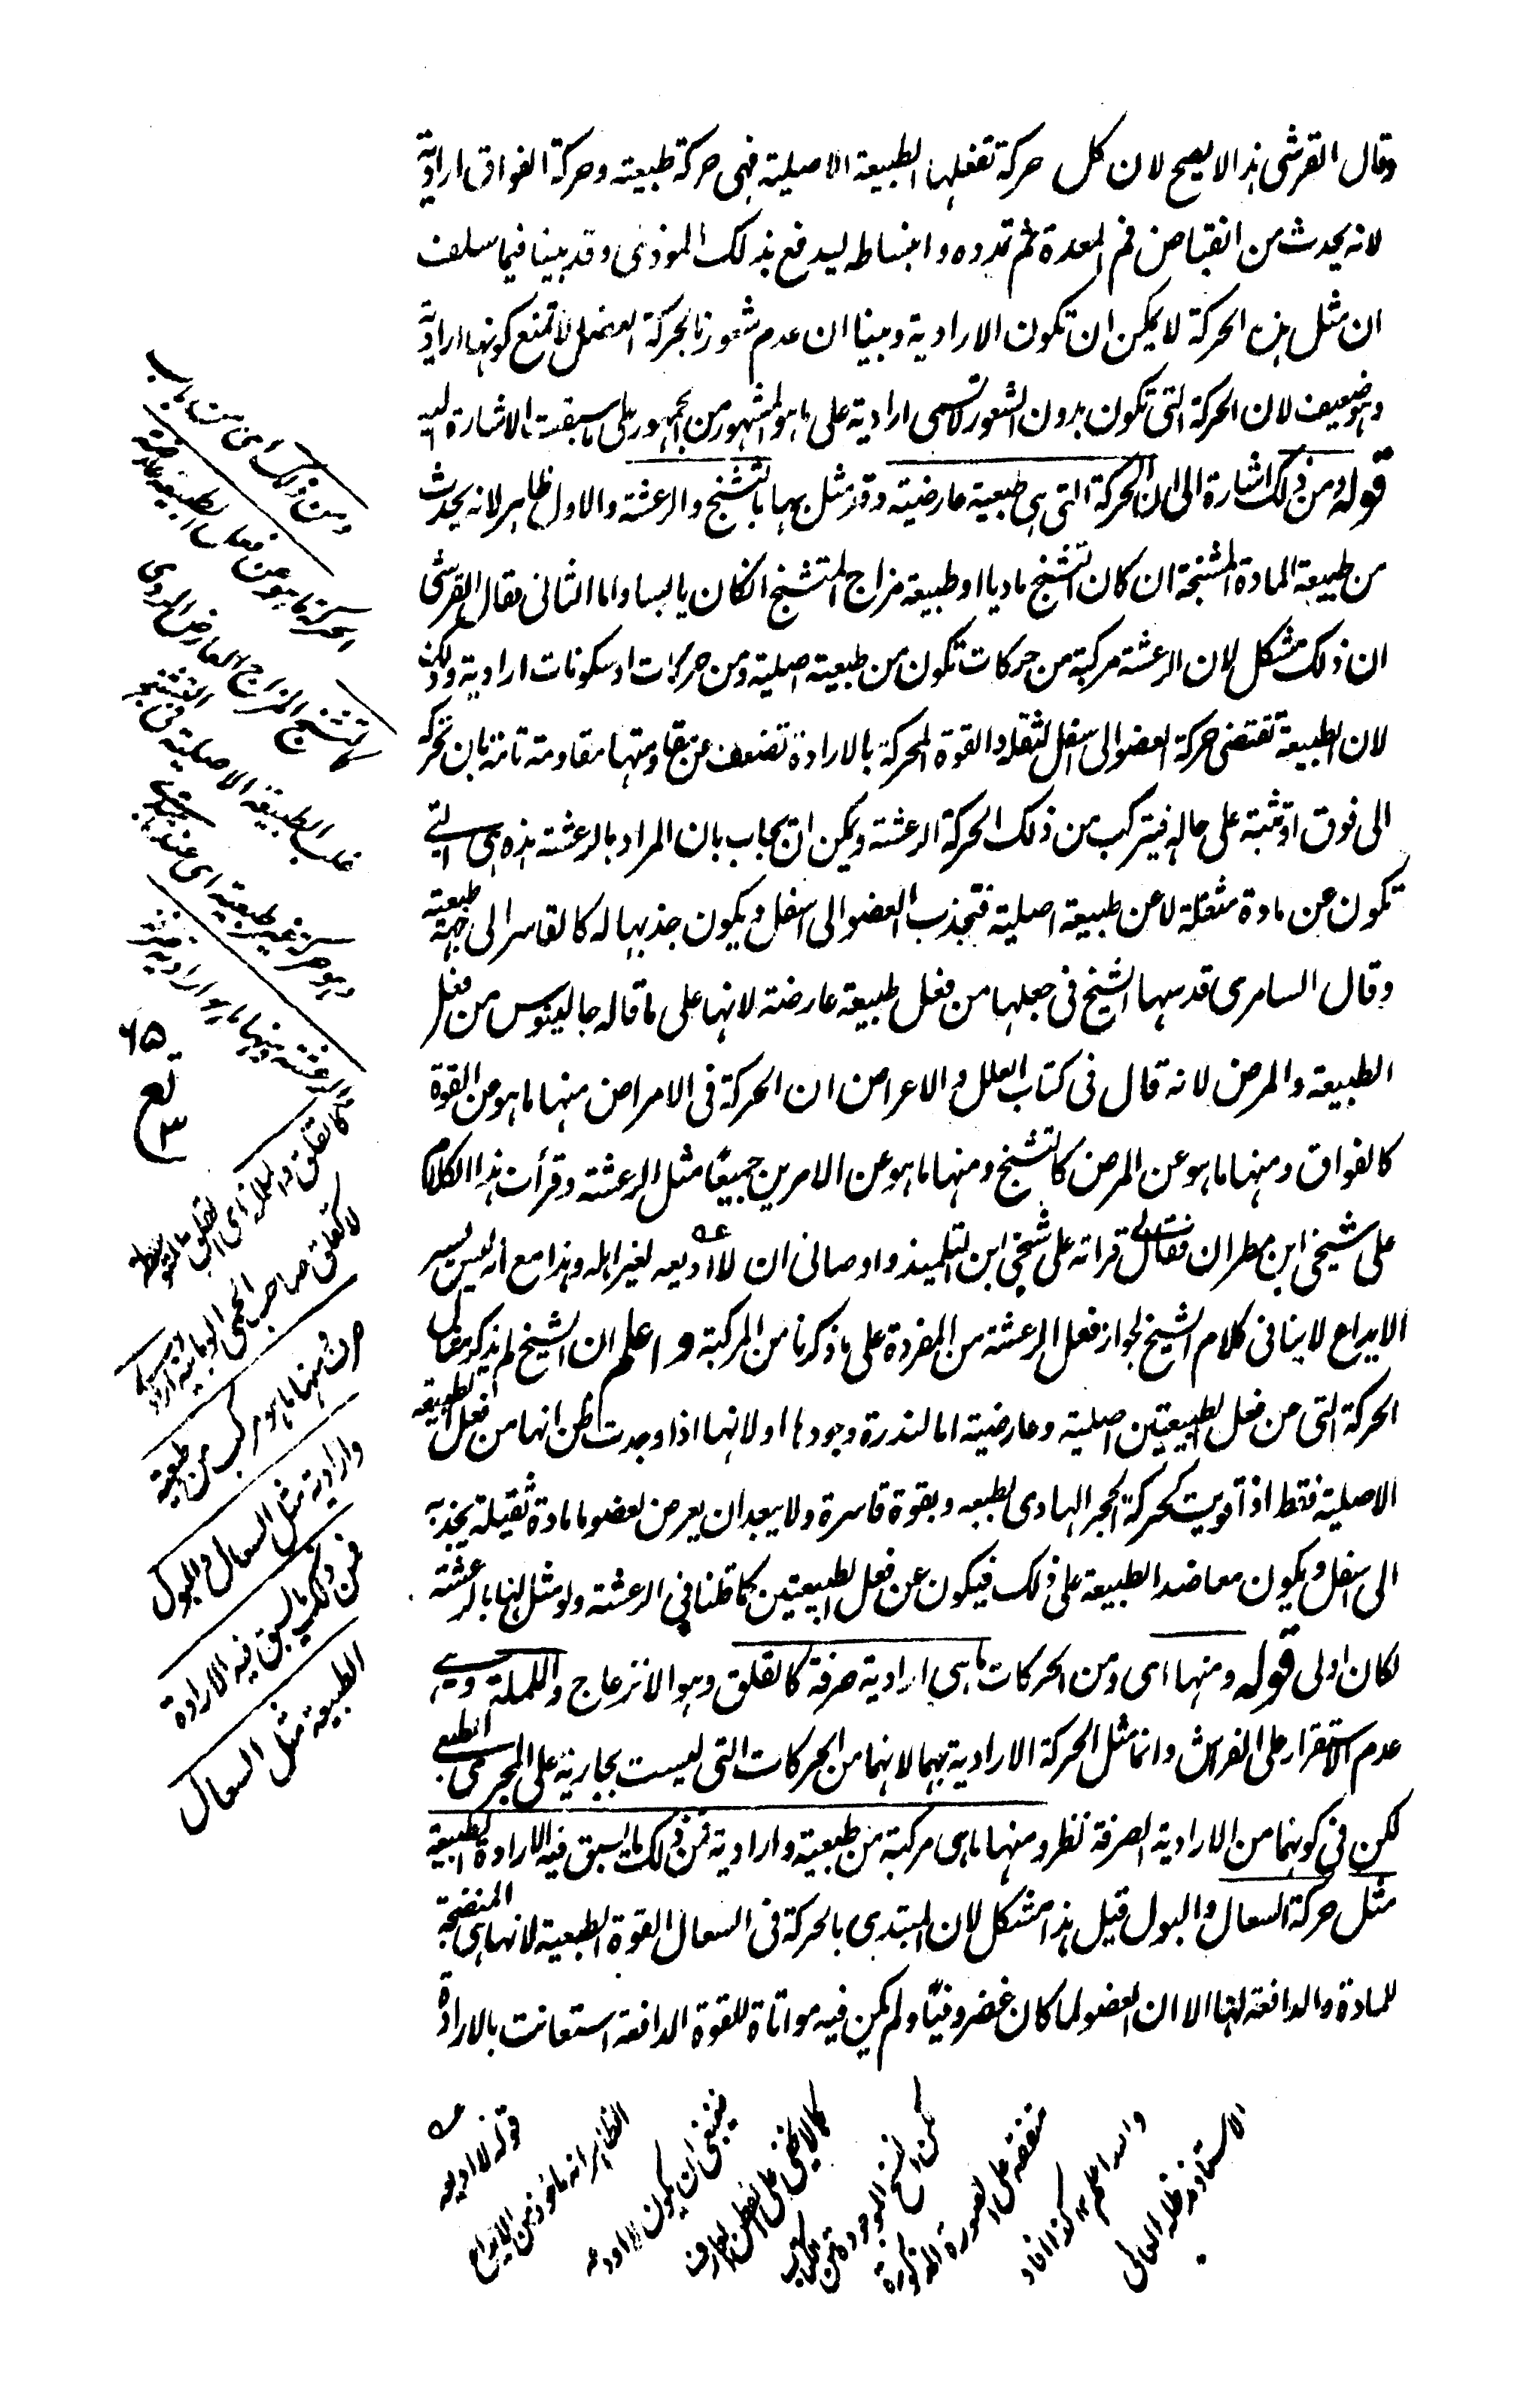 وقال القرشى هذا لا يصح لان كل حركة تفعلها الطبيعة الاصلية فهى حركة طبيعته وحركة الفواق ارادية
لانه يحدث من انقباض فم المعدة ثم تمدده وانبساطه ليدفع بذلك الموذى وقد بينا فيما سلف
ان مثل هذه الحركة لا يمكن ان تكون الا ارادية وبينا ان عدم شعورنا بحركة العضل لا تمنع كونها ارادية
وهو ضعيف لان الحركة التى تكون بدون الشعور لا تسمى ارادية على ما هو المشهور من الجمهور على ما سبقت الاشارة اليه
قوله ومن ذلك اشارة الى ان الحركة التى هى طبيعية عارضية وقد مثل بها بالتشنج والرعشة والاول ظاهر لانه يحدث
من طبيعة المادة المشنجة ان كان التشنج ماديا او طبيعة مزاج المتشنج انكان يابسا واما الثانى فقال القرشى
ان ذلك مشكل لان الرعشة مركبة من حركات تكون من طبيعة اصلية ومن حركات او سكونات ارادية وذلك
لان الطبيعة تقتضى حركة العضو الى اسفل لثقله والقوة المحركة بالارادة تضعف عن مقاومتها مقاومة تامة بان تحركه
الى فوق او تثبته على حاله فيتركب من ذلك الحركة الرعشة ويمكن ان يجاب بان المراد بالرعشة هذه هى التى
تكون عن مادة مثقلة لا عن طبيعة اصلية فتجذب العضو الى اسفل ويكون جذبها له كالقاسر الى جهة طبيعته
وقال السامرى قد سها الشيخ فى جعلها من فعل طبيعة عارضة لانها على ما قاله جالينوس من فعل
الطبيعة والمرض لانه قال فى كتاب العلل والاعراض ان الحركة فى الامراض منها ما هو من القوة
كالفواق ومنها ما هو عن المرض كالتشنج ومنها ما هو عن الامرين جميعا مثل الرعشة وقرأت هذا الكلام
على شيخى ابن مطران فقال لى قراته على شيخى ابن التلميذ واوصانى ان لا اديعه لغير اهله وهذا مع انه ليس يسر
الابداع لا ينافى كلام الشيخ لجواز فعل الرعشة من المفردة على ما ذكرنا من المركبة واعلم ان الشيخ لم يذكر مثال
الحركة التى من فعل الطبيعتين اصلية وعارضية اما لندرة وجودها او لانها اذا وجدت ظن انها من فعل الطبيعة
الاصلية فقط اذا قويت كحركة الحجر الهادى بطبعه وبقوة قاسرة ولا يبعد ان يعرض لعضو ما مادة ثقيلة يجذبه
الى اسفل ويكون معاضد الطبيعة على ذلك فيكون عن فعل الطبيعتين كما قلنا فى الرعشة ولو مثل لها بالرعشة
لكان اولى قوله ومنها اى ومن الحركات ما هى ارادية صرفة كالقلق وهو الانزعاج والململة وهى
عدم الاستقرار على الفراش وانما مثل الحركة الارادية بهما لانهما من الحركات التى ليست بجارية على المجرى الطبعى
لكن فى كونهما من الارادية الصرفة نظر ومنها ما هى مركبة من طبيعية وارادية فمن ذلك ما يسبق فيه الارادة الطبيعة
مثل حركة السعال والبول قيل هذا مشكل لان المبتدى بالحركة فى السعال القوة الطبعية لانها هى المنضجة
للمادة والدافعة لها الا ان العضو لما كان غضروفيا ولم يكن فيه مواتاة للقوة الدافعة استعانت بالارادة
ومن ذلك اى من باب
الحركة ما هو عن فعل الطبيعة عارضة
كالتشنج المزاج العارض الردى
غلب الطبيعة الاصلية فى التشنج
وهو حركة غير طبيعية اى
والرعشة ومنها ما هو ارادية صرفة
٦٥
تع
٣
كالقلق والململة اى القلق
لا كقلق صاحب الحمى الوبائية
صرف ومنها ما هو مركب من طبيعية
وارادية مثل السعال والبول
فمن ذلك ما يسبق فيه الارادة
الطبيعة مثل السعال
عه
قوله لا اديعه
الظاهر انه ماخوذ من الايداع
ينبغى ان يكون لا اودعه
كما لا يخفى على الفطن العارف
لكن النسخ الموجودة عن
متفقة على الصورة المذكورة
والله اعلم كذا افاد
الاستاذ مد ظله العالى